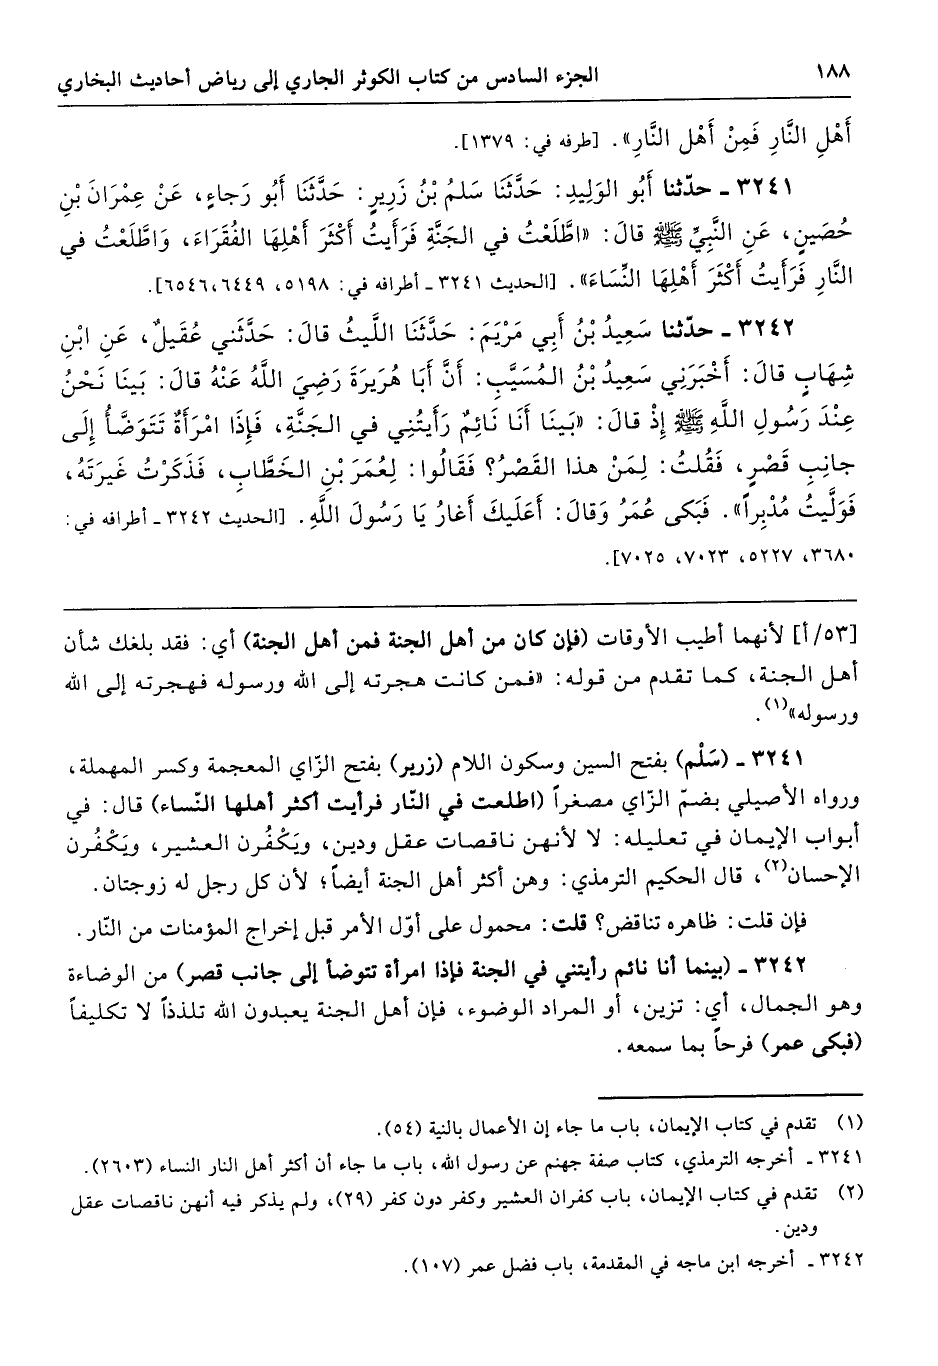 ١٨٨
الجزء السادس من كتاب الكوثر الجاري إلى رياض أحاديث البخاري
أَهْلِ النَّارِ فَمِنْ أَهْل النَّارِ». [طرفه في: ١٣٧٩].
٣٢٤١ ـ حدّثنا أَبُو الوَلِيدِ: حَدَّثَنَا سَلمُ بْنُ زَرِيرٍ: حَدَّثَنَا أَبُو رَجاءٍ، عَنْ عِمْرَانَ بْنِ
حُصَينٍ، عَنِ النَّبِيِّ ﷺ قالَ: «اطَّلَعْتُ في الجَنَّةِ فَرَأَيتُ أَكْثَرَ أَهْلِهَا الفُقَرَاءَ، وَاطَّلَعْتُ في
النَّارِ فَرَأَيتُ أَكْثَرَ أَهْلِهَا النِّسَاءَ». [الحديث ٣٢٤١ ـ أطرافه في: ٥١٩٨، ٦٤٤٩،٦٥٤٦].
٣٢٤٢ ـ حدّثنا سَعِيدُ بْنُ أَبِي مَرْيَمَ: حَدَّثَنَا اللَّيثُ قالَ: حَدَّثَني عُقَيلٌ، عَنِ ابْنِ
شِهَابٍ قالَ: أَخْبَرَنِي سَعِيدُ بْنُ المُسَيَّبِ: أَنَّ أَبَا هُرَيرَةَ رَضِيَ اللَّهُ عَنْهُ قالَ: بَينَا نَحْنُ
عِنْدَ رَسُولِ اللَّهِ ﷺ إِذْ قالَ: «بَينَا أَنَا نَائِمٌ رَأَيتُنِي في الجَنَّةِ، فَإِذَا امْرَأَةٌ تَتَوَضَّأُ إِلَى
جانِبِ قَصْرٍ، فَقُلتُ: لِمَنْ هذا القَصْرُ؟ فَقَالُوا: لِعُمَرَ بْنِ الخَطَّابِ، فَذَكَرْتُ غَيرَتَهُ،
فَوَلَّيتُ مُدْبِراً». فَبَكى عُمَرُ وَقالَ: أَعَلَيكَ أَغارُ يَا رَسُولَ اللَّهِ. [الحديث ٣٢٤٢ ـ أطرافه في:
٣٦٨٠، ٥٢٢٧، ٧٠٢٣، ٧٠٢٥].
[٥٣/أ] لأنهما أطيب الأوقات (فإن كان من أهل الجنة فمن أهل الجنة) أي: فقد بلغك شأن
أهل الجنة، كما تقدم من قوله: «فمن كانت هجرته إلى الله ورسوله فهجرته إلى الله
ورسوله»(١).
٣٢٤١ ـ (سَلْم) بفتح السين وسكون اللام (زرير) بفتح الزّاي المعجمة وكسر المهملة،
ورواه الأصيلي بضمّ الزّاي مصغراً (اطلعت في النّار فرأيت أكثر أهلها النّساء) قال: في
أبواب الإيمان في تعليله: لا لأنهن ناقصات عقل ودين، ويَكْفُرن العشير، ويَكْفُرن
الإحسان(٢)، قال الحكيم الترمذي: وهن أكثر أهل الجنة أيضاً؛ لأن كل رجل له زوجتان.
فإن قلت: ظاهره تناقض؟ قلت: محمول على أوّل الأمر قبل إخراج المؤمنات من النّار.
٣٢٤٢ ـ (بينما أنا نائم رأيتني في الجنة فإذا امرأة تتوضأ إلى جانب قصر) من الوضاءة
وهو الجمال، أي: تزين، أو المراد الوضوء، فإن أهل الجنة يعبدون الله تلذذاً لا تكليفاً
(فبكى عمر) فرحاً بما سمعه.
(١) تقدم في كتاب الإيمان، باب ما جاء إن الأعمال بالنية (٥٤).
٣٢٤١ ـ أخرجه الترمذي، كتاب صفة جهنم عن رسول الله، باب ما جاء أن أكثر أهل النار النساء (٢٦٠٣).
(٢) تقدم في كتاب الإيمان، باب كفران العشير وكفر دون كفر (٢٩)، ولم يذكر فيه أنهن ناقصات عقل
ودين.
٣٢٤٢ ـ أخرجه ابن ماجه في المقدمة، باب فضل عمر (١٠٧).